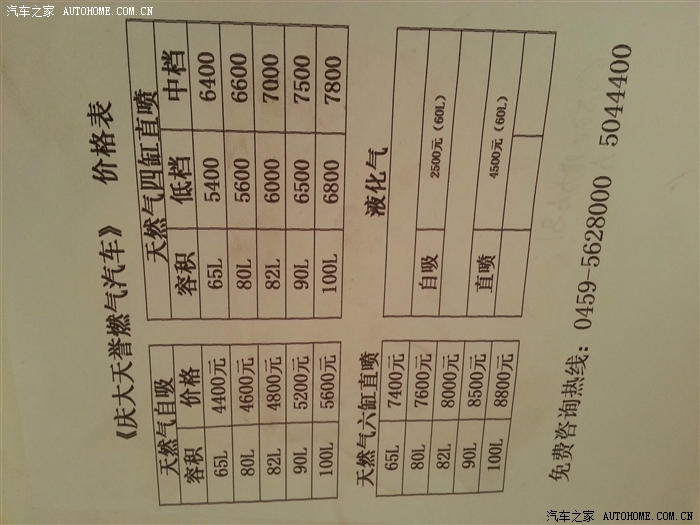 汽车之家 AUTOHOME.COM.CN
《庆大天誉燃气汽车》 价格表
天然气自吸
容积 价格
65L 4400元
80L 4600元
82L 4800元
90L 5200元
100L 5600元
天然气四缸直喷
容积 低档 中档
65L 5400 6400
80L 5600 6600
82L 6000 7000
90L 6500 7500
100L 6800 7800
天然气六缸直喷
65L 7400元
80L 7600元
82L 8000元
90L 8500元
100L 8800元
液化气
自吸 2500元（60L）
直喷 4500元（60L）
免费咨询热线：0459-5628000 5044400
汽车之家 AUTOHOME.COM.CN